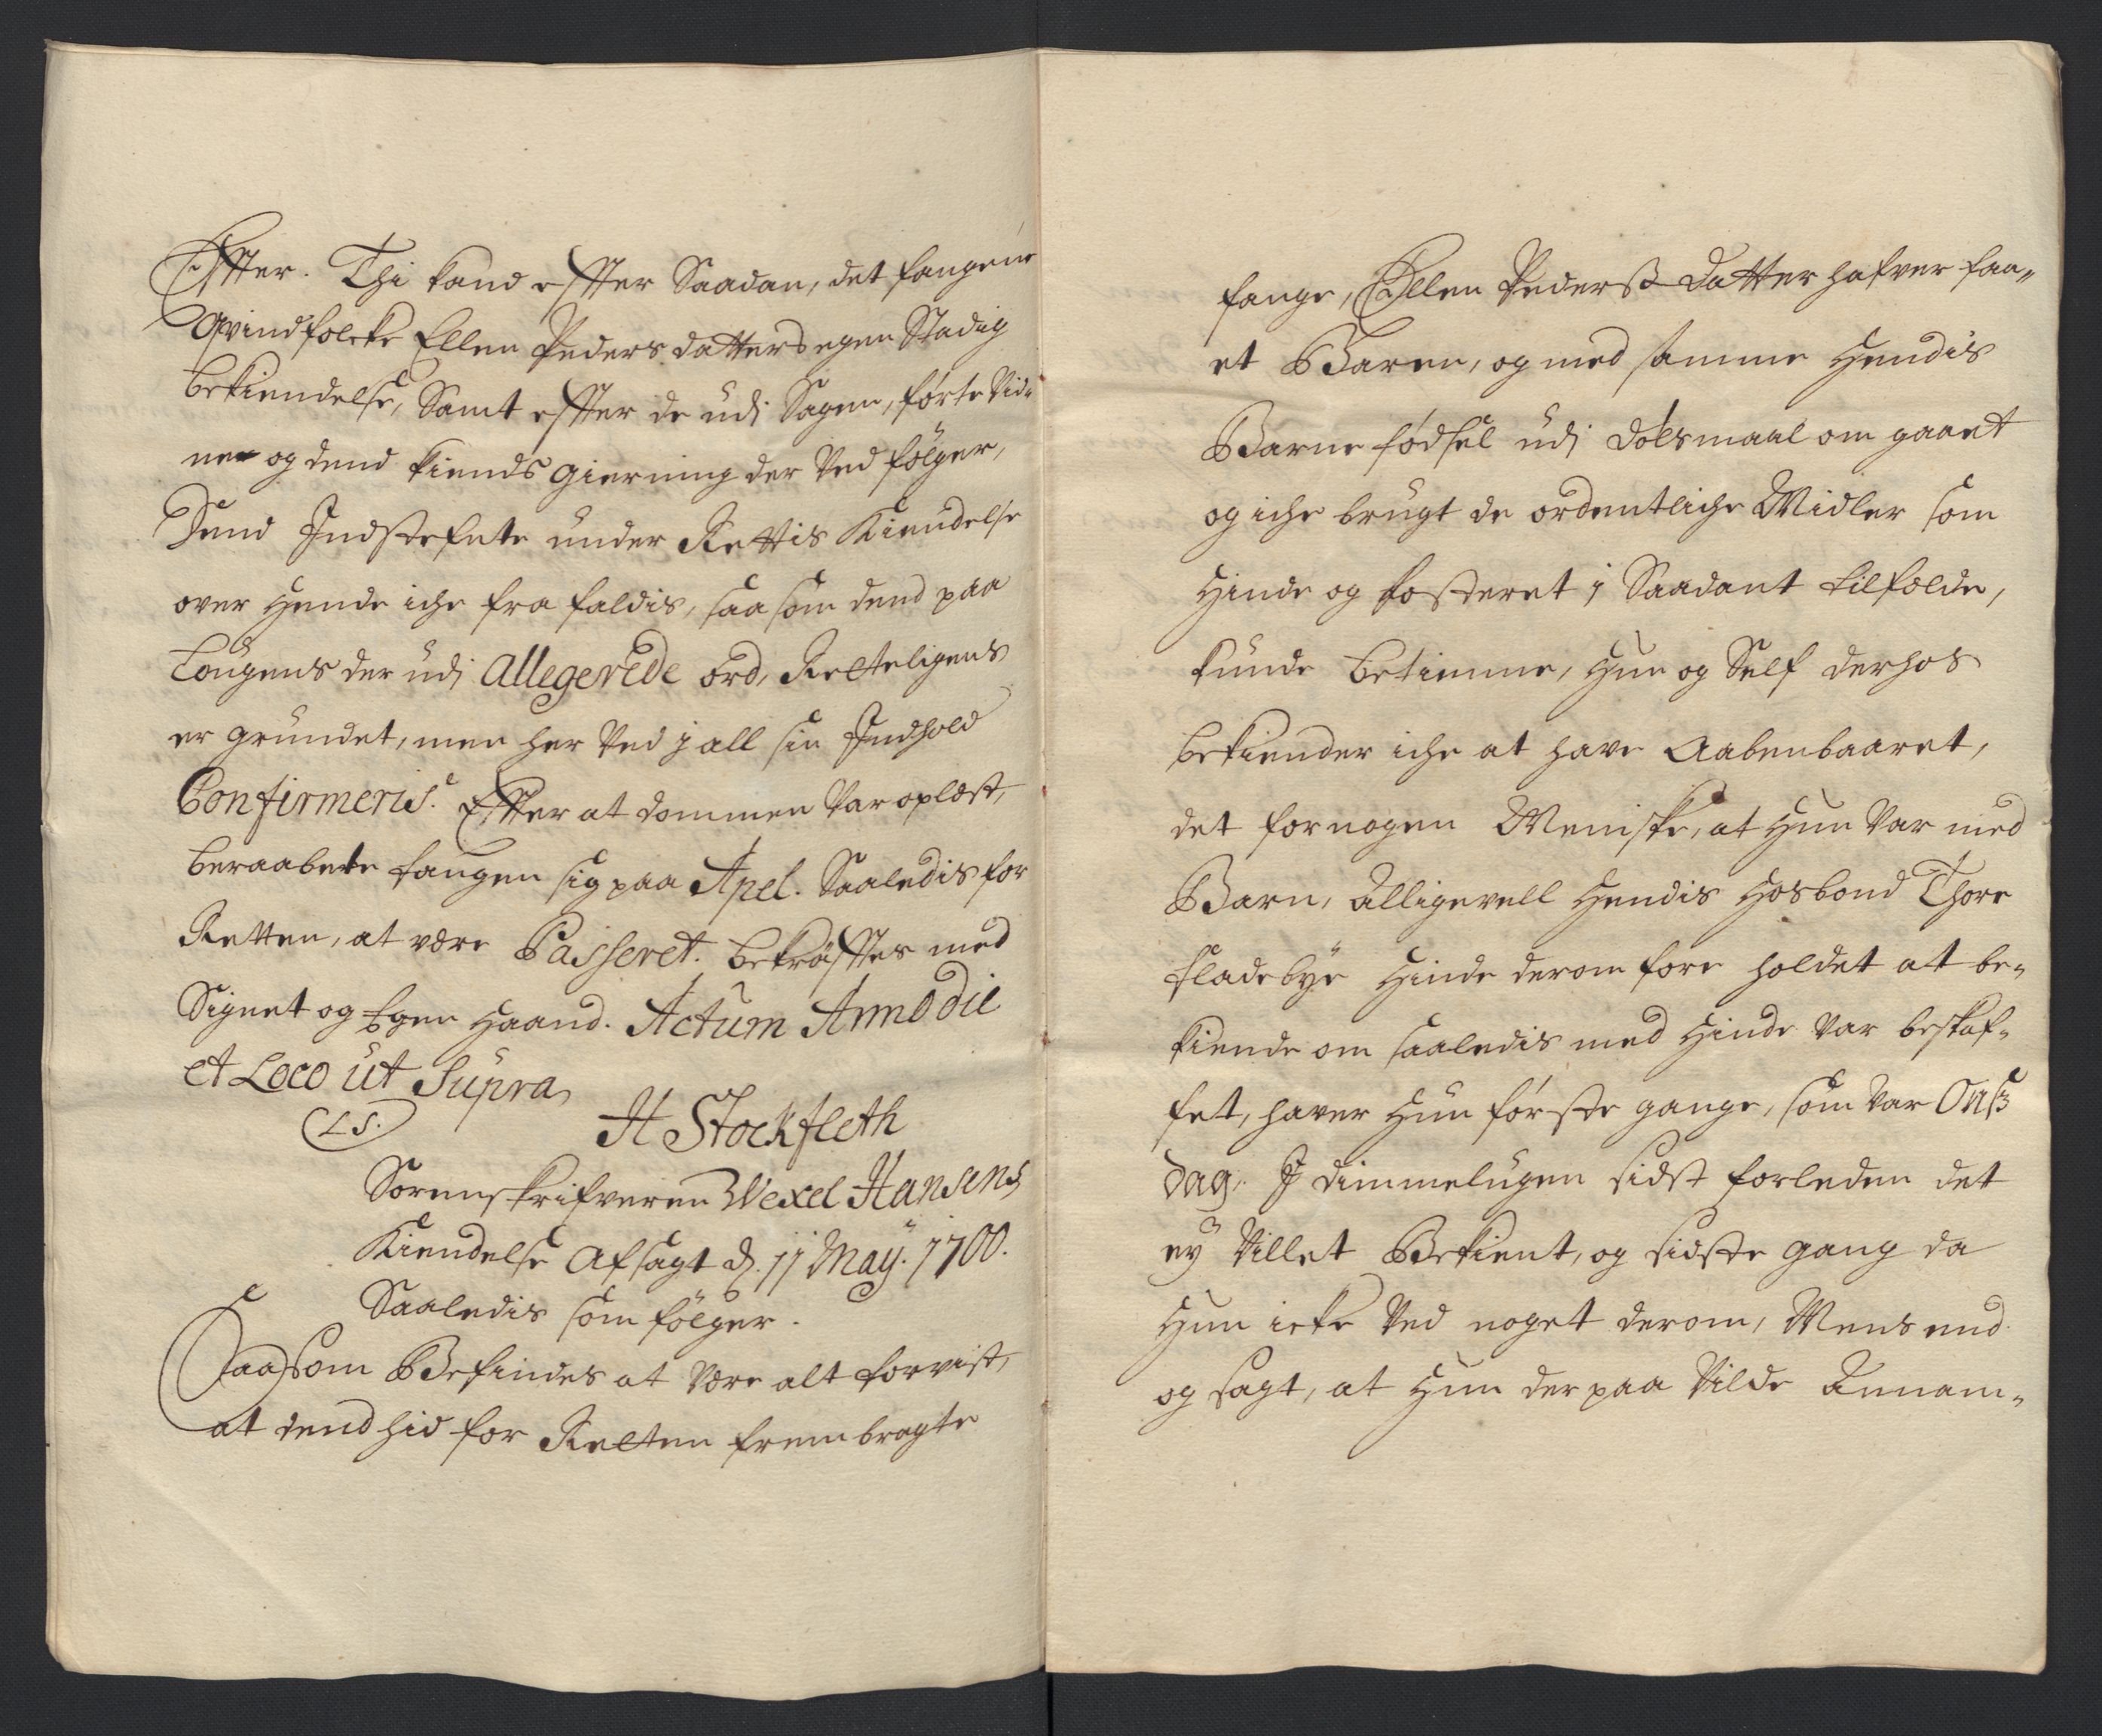 Effter. Thi kand effter Saadan, det fangene
Qvindfolcke Ellen Peders datters egen Stadig
bekiendelse, Samt effter de udj Sagen, førte Vid-
ner og dend kiends gierning der Ved følger,
Dend Indstefnte under Rettis Kiendelse
over Hende iche fra faldis, saasom dend paa
Lougens der udj Allegerede ord, Retteligens
er grundet, men her Ved j all sin Indhold
Confirmeris. Effter at dommen Var oplæst,
beraabete fangen sig paa Apel. Saaledis for
Retten, at være Passeret. bekräfftes med
Signet og Egen Haand. Actum Anno die
et Loco ut Supra
(LS.)
H Stockfleth
Sorenskrifveren Wexel Hansens
Kiendelse Afsagt d. 11 May. 1700.
Saaledis som følger.
Saasom Befindes at være alt forvist,
at dend hid for Retten frembragte
fange, Ellen Pederss Datter hafver faa-
et Baren, og med samme Hendis
Barne fødsel udj dølsmaal om gaaet
og iche brugt de ordentlighe Midler som
Hinde og fosteret i Saadant tilfælde,
kunde betimme, Hun og Self derhos
bekiender iche at have Aabenbaaret,
det for nogen Meniske, at Hun Var med
Barn, Alligevell Hendis Hosbond Thore
Fladebye Hinde derom fore holdet at be-
kiende om saaledis med Hinde Var beskaf-
fet, haver Hun første gange, som Var Onss
dag. I dimmelugen sidst forleden det
ey Villet Bekient, og sidste gang da
Hun icke Ved noget derom, Mens end
og sagt, at Hun der paa Vilde Annam-